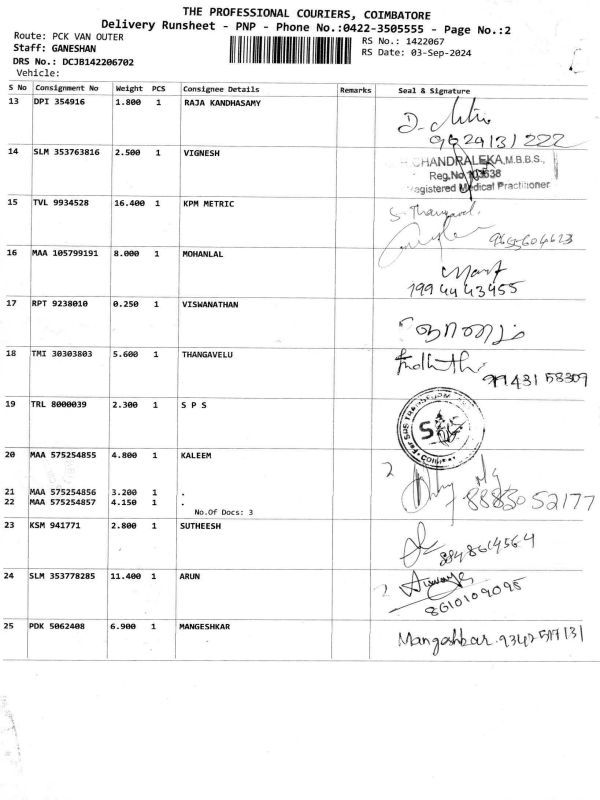 THE PROFESSIONAL COURIERS, COIMBATORE
Delivery Runsheet - PNP - Phone No.:0422-3505555 - Page No.:2
Route: PCK VAN OUTER
RS No.: 1422067
Staff: GANESHAN
RS Date: 03-Sep-2024
DRS No.: DCJB142206702
Vehicle:
S No Consignment No Weight PCS Consignee Details Remarks Seal & Signature
13 DPI 354916 1.800 1 RAJA KANDHASAMY
14 SLM 353763816 2.500 1 VIGNESH
CHANDRALEKA, M.B.B.S.,
Reg.No
Medical Practitioner
15 TVL 9934528 16.400 1 KPM METRIC
S. Thangavel.
9655604623
16 MAA 105799191 8.000 1 MOHANLAL
1994443455
17 RPT 9238010 0.250 1 VISWANATHAN
18 TMI 30303803 5.600 1 THANGAVELU
9943158309
19 TRL 8000039 2.300 1 S P S
20 MAA 575254855 4.800 1 KALEEM
21 MAA 575254856 3.200 1 .
22 MAA 575254857 4.150 1 .
8883052177
No.Of Docs: 3
23 KSM 941771 2.800 1 SUTHEESH
8848614564
24 SLM 353778285 11.400 1 ARUN
8610109095
25 PDK 5062408 6.900 1 MANGESHKAR
Mangeshkar. 9342517131